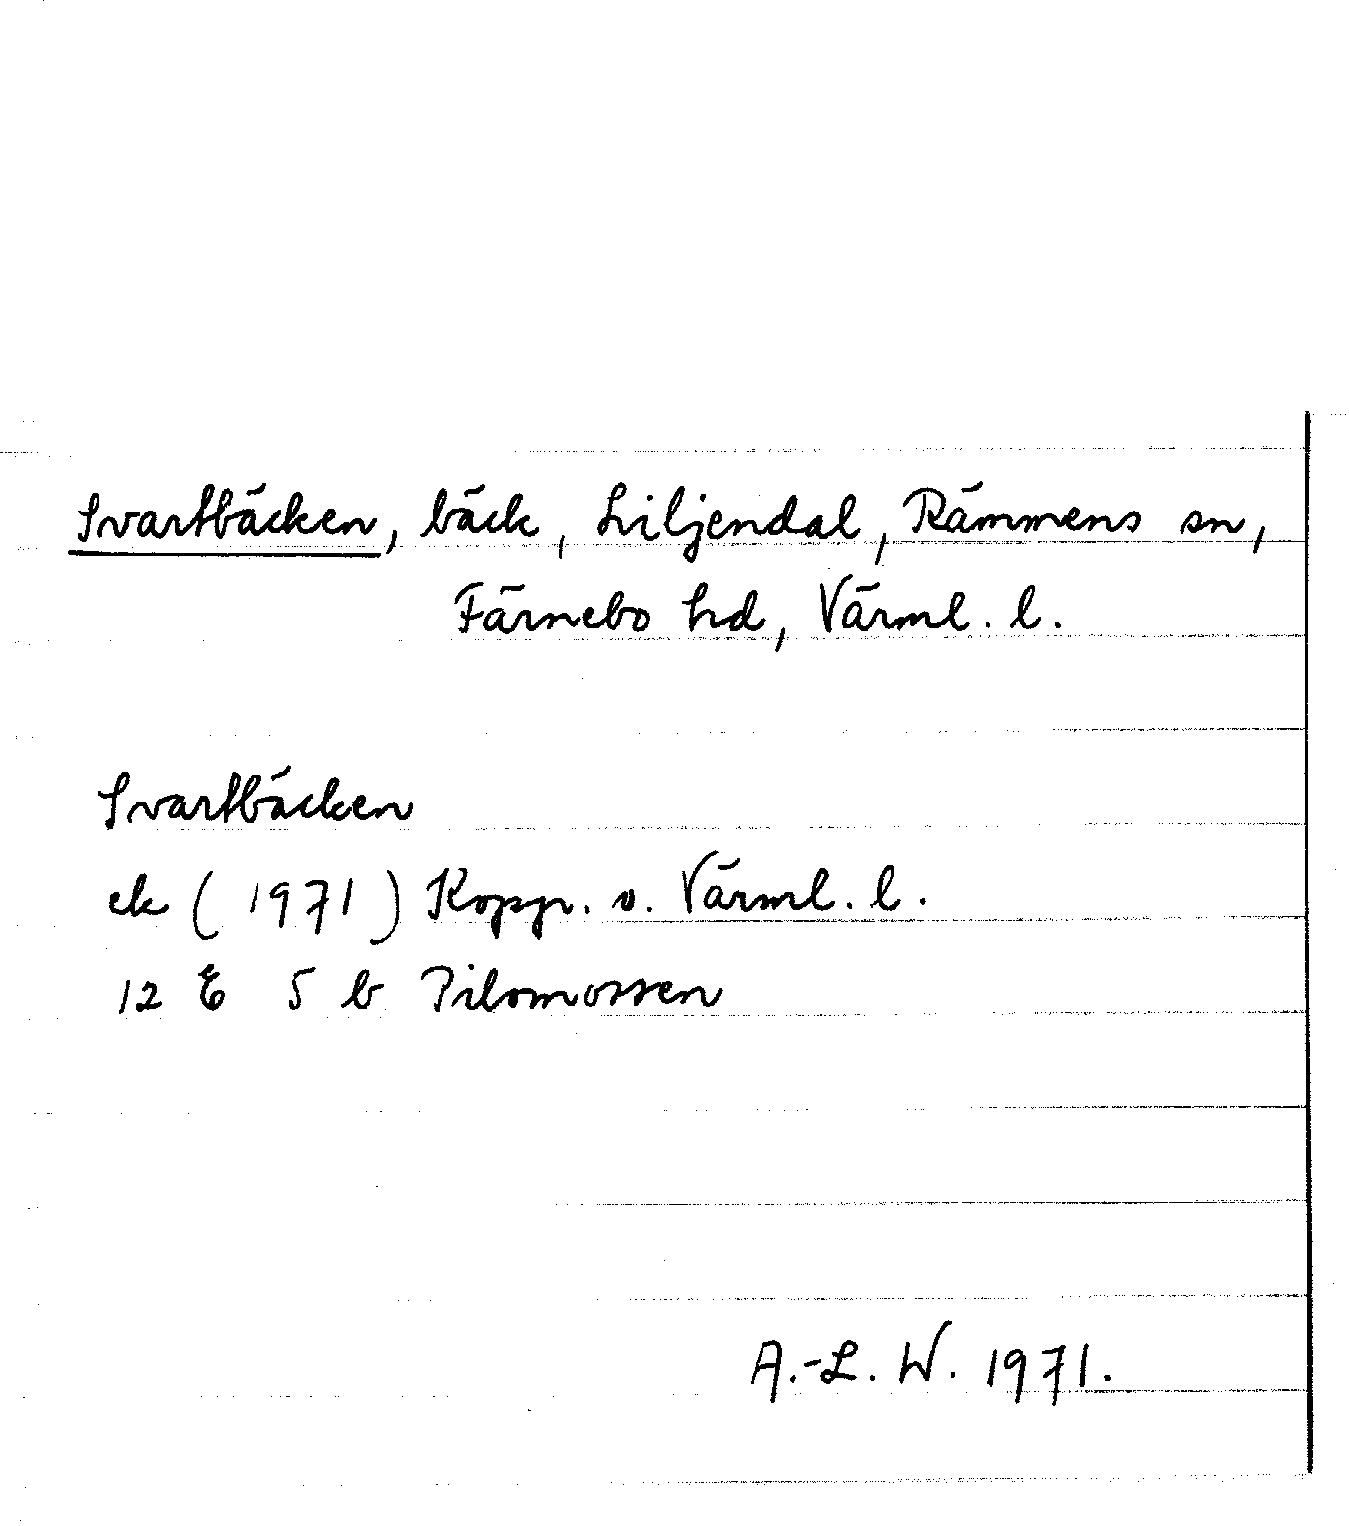 Svartbäcken, bäck, Liljendal, Rämmens sn,
Färnebo hd, Värml. l.
Svartbäcken
ek (1971) Koppr. o. Värml. l.
12 E 5 b Pilomossen
A.-L. W. 1971.